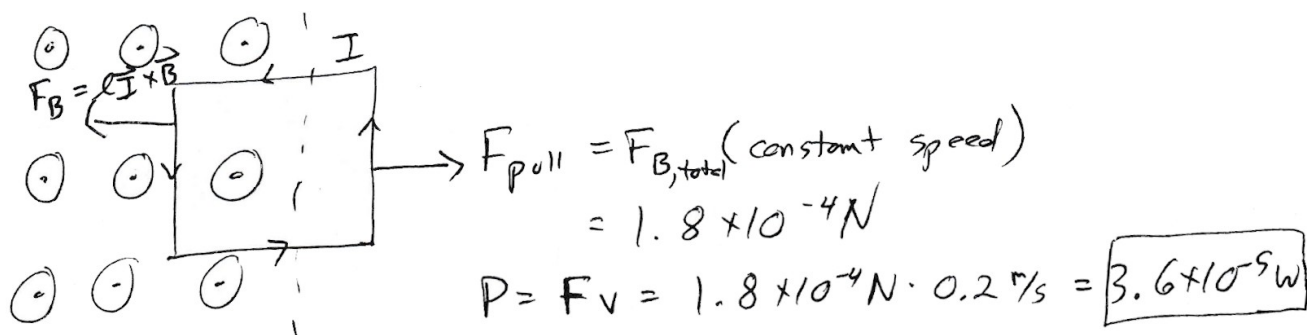 I
F_B = ℓI⃗ × B⃗
F_pull = F_B,total (constant speed)
= 1.8 × 10^-4 N
P = Fv = 1.8 × 10^-4 N · 0.2 m/s = 3.6 × 10^-5 W